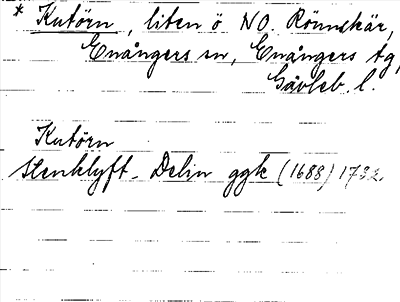 * Kutörn, liten ö NO. Rönnskär,
Enångers sn, Enångers tg,
Gävleb. l.
Kutörn
Stenklyft- Delin ggk (1688) 1732